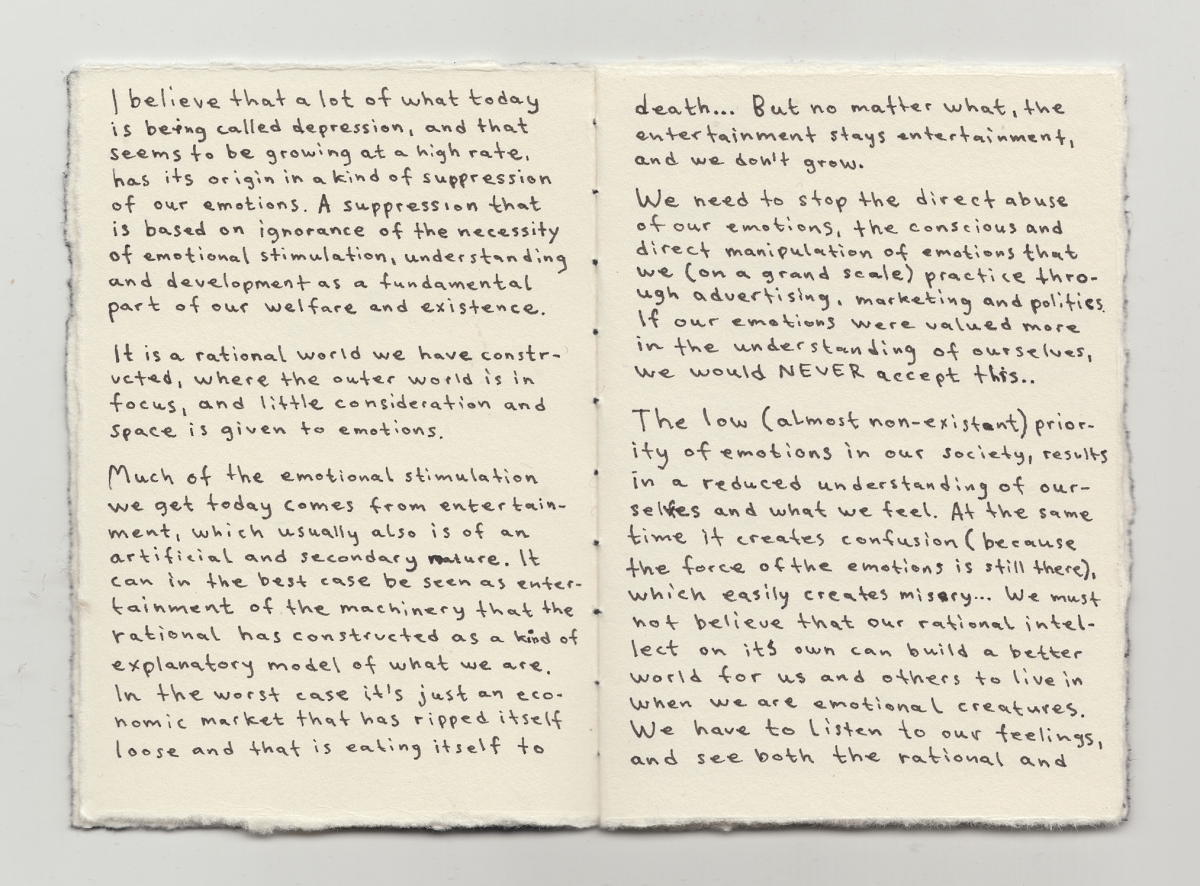 I believe that a lot of what today
is being called depression, and that
seems to be growing at a high rate,
has its origin in a kind of suppression
of our emotions. A suppression that
is based on ignorance of the necessity
of emotional stimulation, understanding
and development as a fundamental
part of our welfare and existence.
It is a rational world we have constr-
ucted, where the outer world is in
focus, and little consideration and
space is given to emotions.
Much of the emotional stimulation
we get today comes from entertain-
ment, which usually also is of an
artificial and secondary nature. It
can in the best case be seen as enter-
tainment of the machinery that the
rational has constructed as a kind of
explanatory model of what we are.
In the worst case it's just an eco-
nomic market that has ripped itself
loose and that is eating itself to
death... But no matter what, the
entertainment stays entertainment,
and we don't grow.
We need to stop the direct abuse
of our emotions, the conscious and
direct manipulation of emotions that
we (on a grand scale) practice thro-
ugh advertising, marketing and politics.
If our emotions were valued more
in the understanding of ourselves,
we would NEVER accept this..
The low (almost non-existent) prior-
ity of emotions in our society, results
in a reduced understanding of our-
selves and what we feel. At the same
time it creates confusion (because
the force of the emotions is still there),
which easily creates misery... We must
not believe that our rational intel-
lect on it's own can build a better
world for us and others to live in
when we are emotional creatures.
We have to listen to our feelings,
and see both the rational and